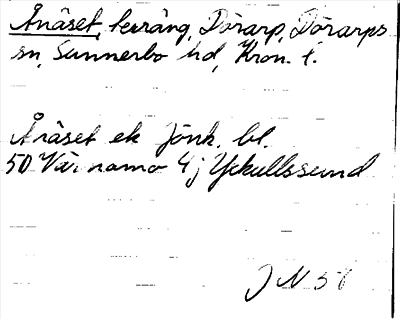 Ånäset, terräng, Dörarp, Dörarps
sn, Sunnerbo hd, Kron. l.
Ånäset ek Jönk. bl.
50 Värnamo 4j Yckullssund
J N 58